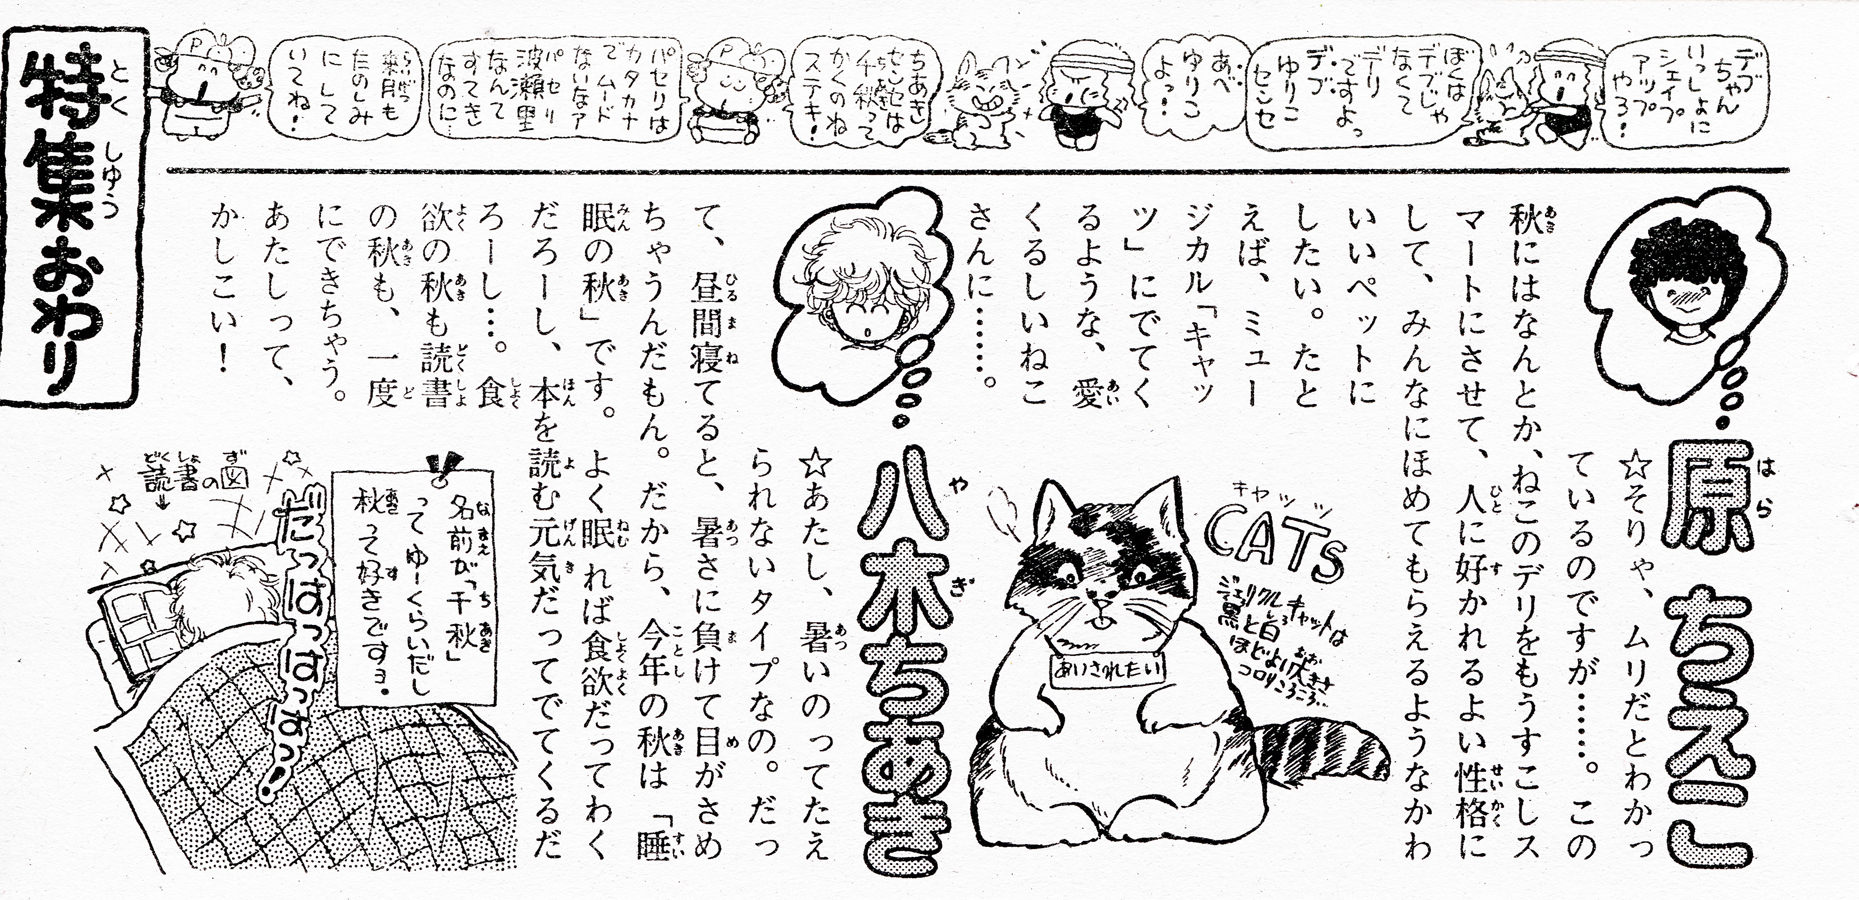 デブ
ちゃん
いっしょに
シェイプ
アップ
やろ！
ぼくは
デブじゃ
なくて
デリ
ですよっ
デ・ブ
ゆりこ
センセ
あ・べ
ゆりこ
よっ！
ちあき
センセは
千秋って
かくのね
ステキ！
パセリは
カタカナ
でムード
ないなァ
パセリ
波瀬里
なんて
すてき
なのに…
らいげつ
来月も
たのしみ
にして
いてね！
とくしゅう
特集おわり
はら
原ちえこ
☆そりゃ、ムリだとわかっ
ているのですが……。この
秋にはなんとか、ねこのデリをもうすこしス
マートにさせて、人に好かれるよい性格に
して、みんなにほめてもらえるようなかわ
いいペットに
したい。たと
えば、ミュー
ジカル「キャッ
ツ」にでてく
るような、愛
くるしいねこ
さんに……。
キャッツ
CATS
ジェリクルキャットは
黒と白
ほどよい大きさ
コロリころころ…
あいされたい
やぎ
八木ちあき
☆あたし、暑いのってたえ
られないタイプなの。だっ
て、昼間寝てると、暑さに負けて目がさめ
ちゃうんだもん。だから、今年の秋は「睡
眠の秋」です。よく眠れば食欲だってわく
だろーし、本を読む元気だってでてくるだ
ろーし…。食
欲の秋も読書
の秋も、一度
にできちゃう。
あたしって、
かしこい！
名前が「千秋」
ってゆーくらいだし
秋って好きですョ。
だっはっはっはっはっ！
読書の図